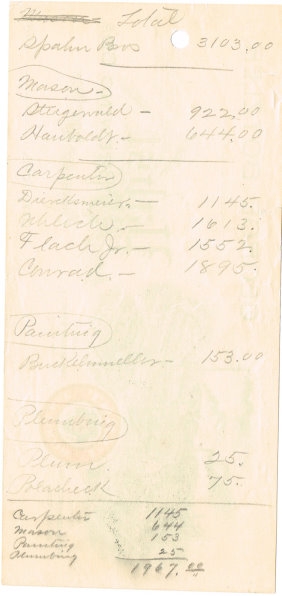 Total
Spahn Bros 3103.00
Mason -
Stegerwald - 922.00
Humboldt - 644.00
Carpenter
Dierdsmeier - 1145.
Uhlich - 1613.
Flach Jr. - 1552.
Conrad - 1895.
Painting
153.00
Plumbing
Plum. 25.
Polacheck 75.
Carpenter 1145
Mason 644
Painting 153
Plumbing 25
1967.00